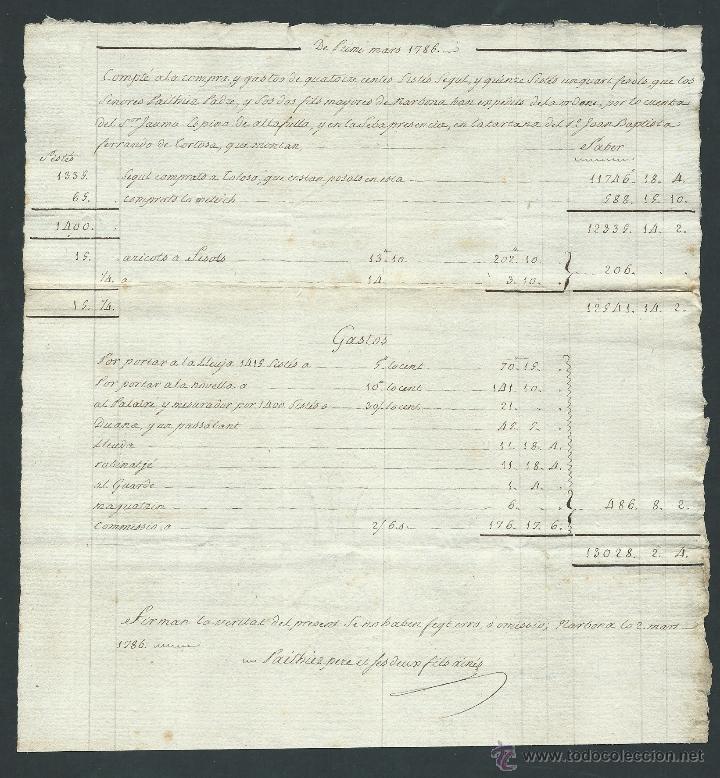 De Prime mars 1786.
Compte a la compra, y gastos de quatorze centes Sestés Segul, y quinze Sestés un quart fesols, que los
Senores Paithiez Padre, y Sos dos fils mayores de Narbona han expedits de la ordre, por lo cuenta
del Sor. Jaume Espina de altafulla, y en la Seba presencia, en la tartana del Pn. Joan Baptista
ferrando de Tortosa, que montan
Saber
Sestés
1335. Segul comprats a Toloso, que costan posats en esta 11746 18. 4.
65. comprats la 588. 15. 10.
1400. 12335. 14. 2.
15. aricots o Fesols 13 10. 202 10.
1/4. a 14. 3. 10. 206.
15. 1/4. 12541. 14. 2.
Gastos
Por portar a la Lleuja 1415 Sestés a 5 lo cent 70. 15.
Por portar a la novella a 10 lo cent 141. 10.
al Palaire, y mesurador por 1400 Sestés a 30 lo cent 21.
Duana, y passatant 45. 5.
Lleuda 11. 18. 4.
robinatjé 11. 18. 4.
al Guarde 1. 4.
magatzin 6. 486. 8. 2.
Commissio, a 2/6 s. 176. 17. 6.
13028. 2. 4.
Firman la veritat del present Se no haben feyt erro, o omissio, Narbona lo 2 mars
1786.
Paithiez pere et ses deux fils ainés
© www.todocoleccion.net